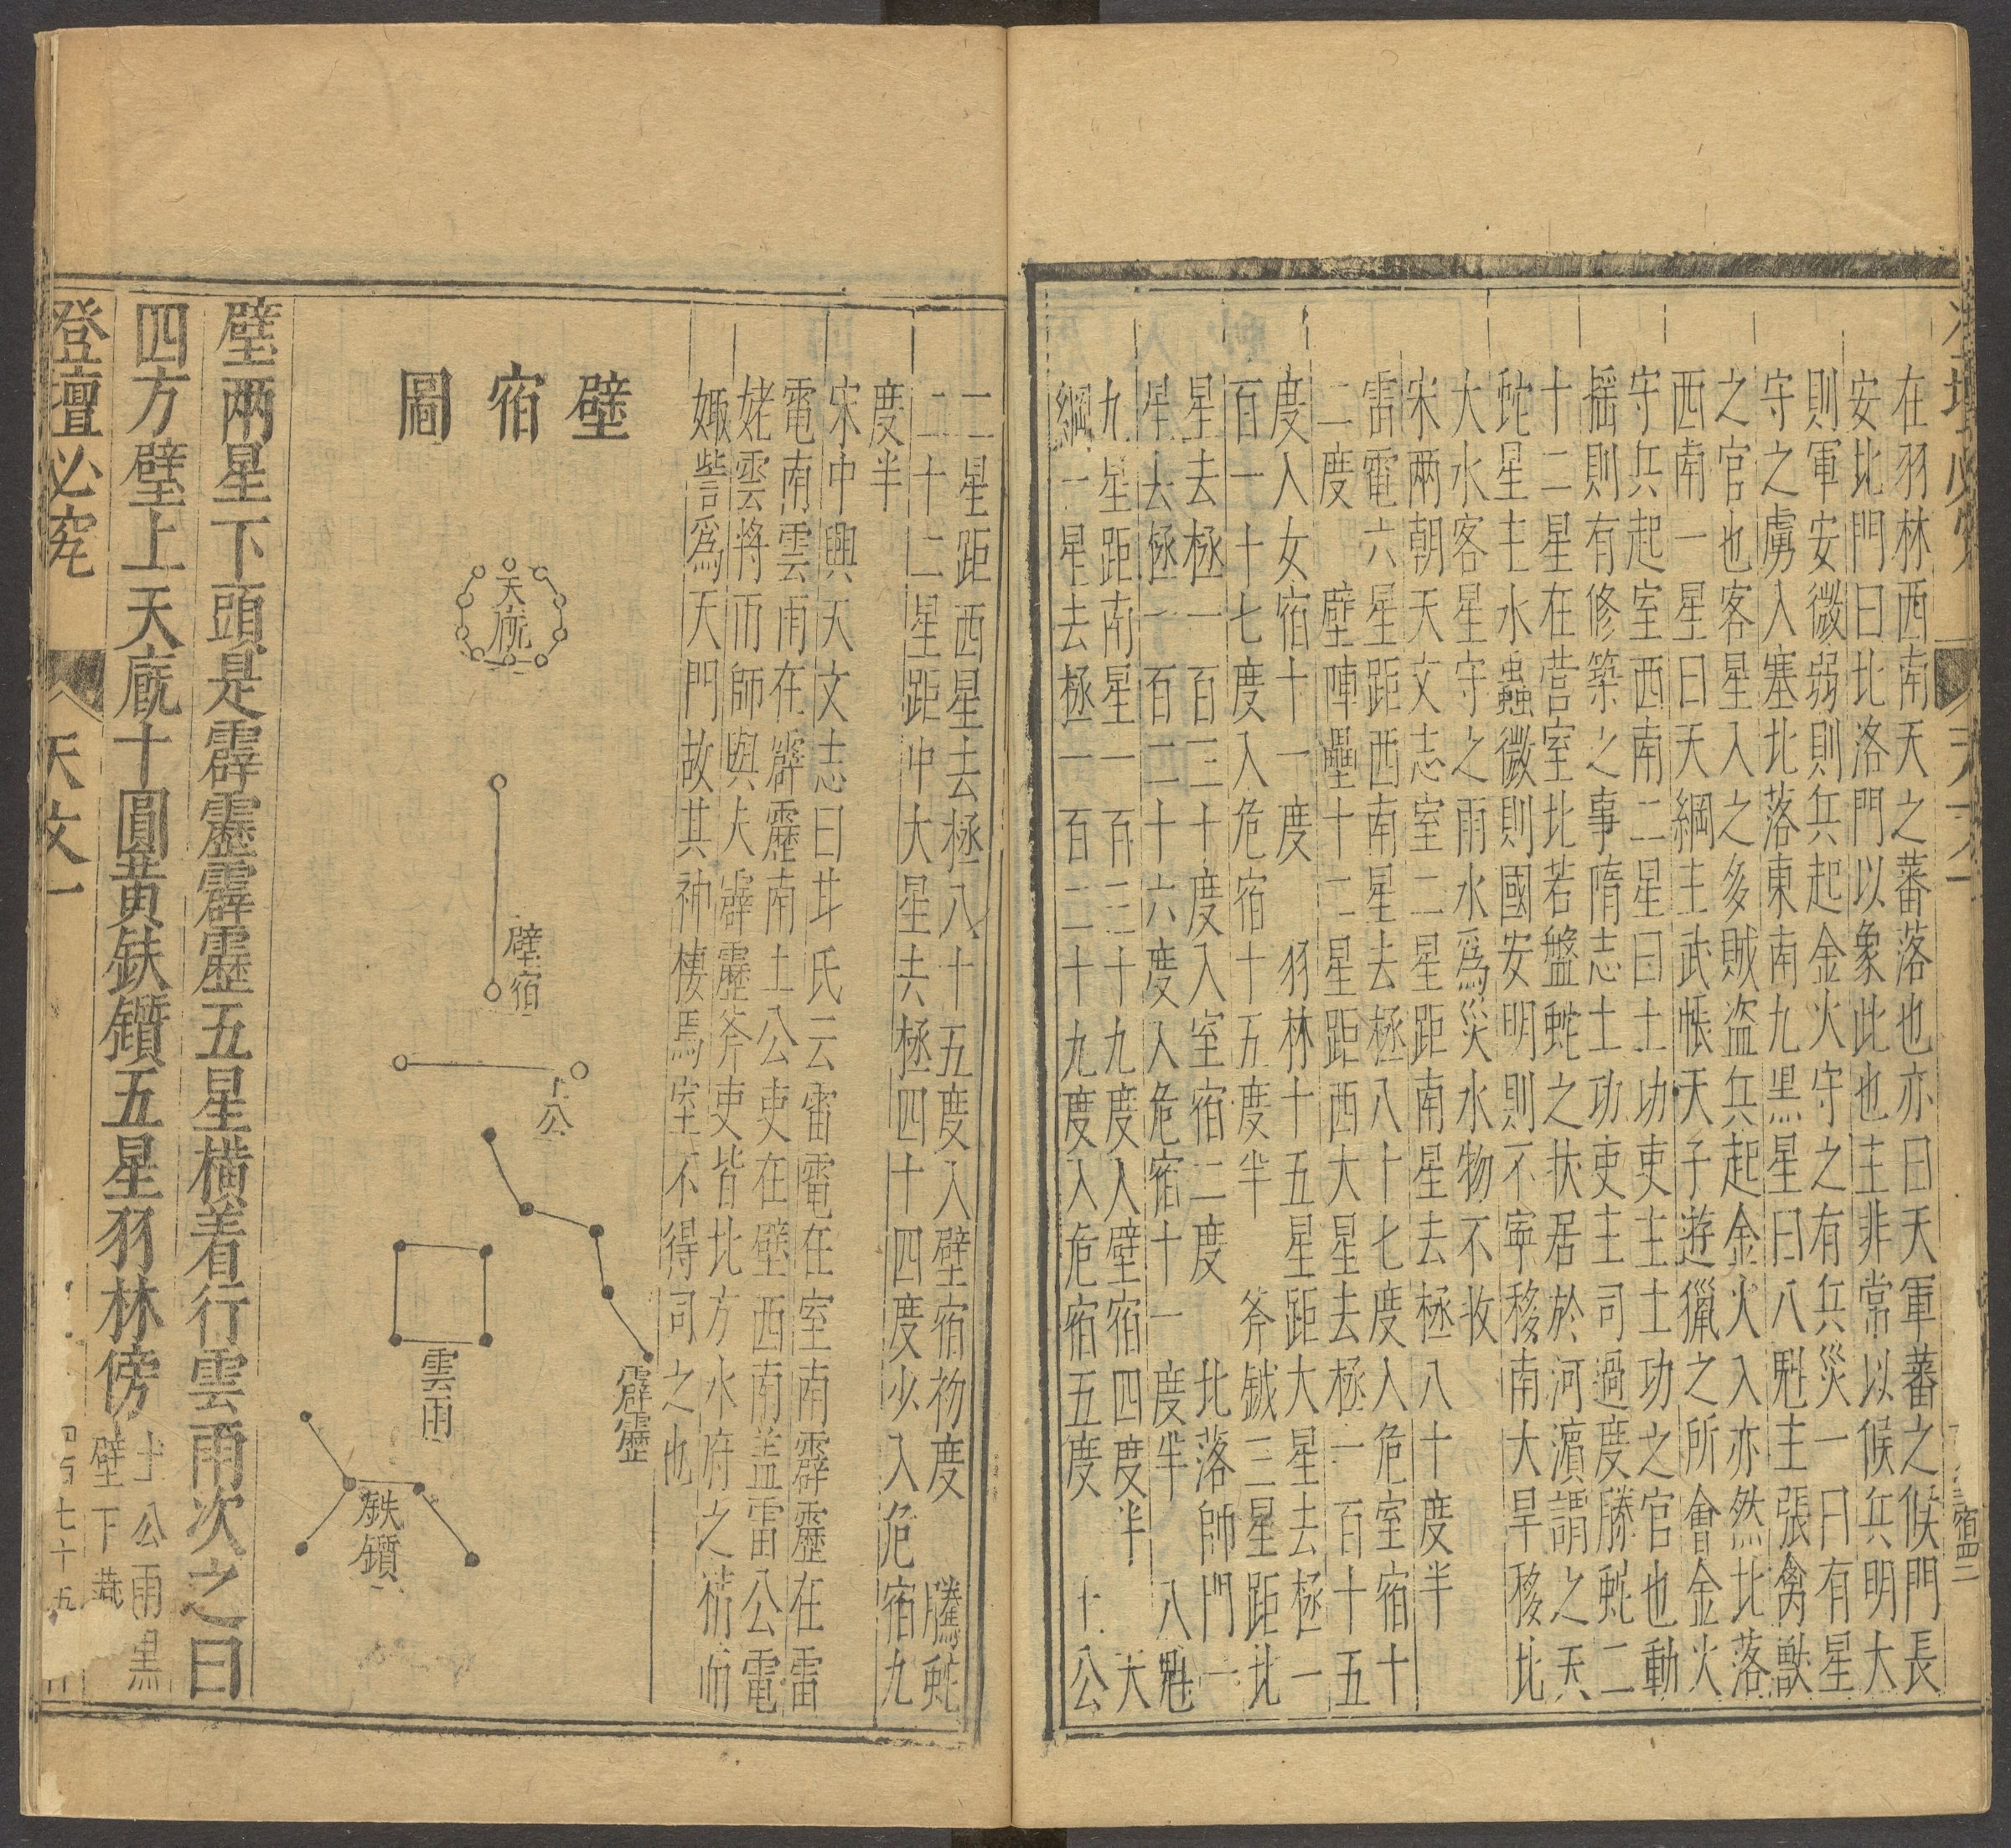 在羽林西南天之蕃落也亦曰天軍蕃之候門長
安北門曰北洛門以象此也主非常以候兵明大
則軍安微弱則兵起金火守之有兵災一曰有星
守之虜入塞北落東南九黑星曰八魁主張禽獸
之官也客星入之多賊盗兵起金火入亦然北落
西南一星曰天綱主武帳天子遊獵之所會金火
守兵起室西南二星曰土功吏主土功之官也動
摇則有修築之事隋志土功吏主司過度勝蛇二
十二星在营室北若盤蛇之扶居於河濵謂之天
蛇星主水蟲微則國安明則不寜移南大旱移北
大水客星守之雨水爲災水物不收
宋兩朝天文志室二星距南星去極八十度半
雷電六星距西南星去極八十七度入危室宿十
二度　壁陣壘十二星距西大星去極一百十五
度入女宿十一度　羽林十五星距大星去極一
百一十七度入危宿十五度半　斧鉞三星距北
星去極一百三十度入室宿二度　北落師門一
星去極一百二十六度入危宿十一度半　八魁
九星距南星一百三十九度入壁宿四度半　大
綱一星去極一百二十九度入危宿五度　土公
二星距西星去極八十五度入壁宿初度　騰蛇
二十二星距中大星去極四十四度少入危宿九
度半
宋中興天文志曰甘氏云雷電在室南霹靂在雷
電南雲雨在霹靂南土公吏在壁西南盖雷公電
姥雲將而師與夫霹靂斧吏皆北方水府之精而
娵訾爲天門故其神棲焉室不得司之也
壁宿圖
天廐
壁宿
土公
霹靂
雲雨
鈇鑕
壁兩星下頭是霹靂霹靂五星横着行雲雨次之曰
四方壁上天廐十圓黄鈇鑕五星羽林傍土公雨黒
壁下藏
登壇必究
天文一